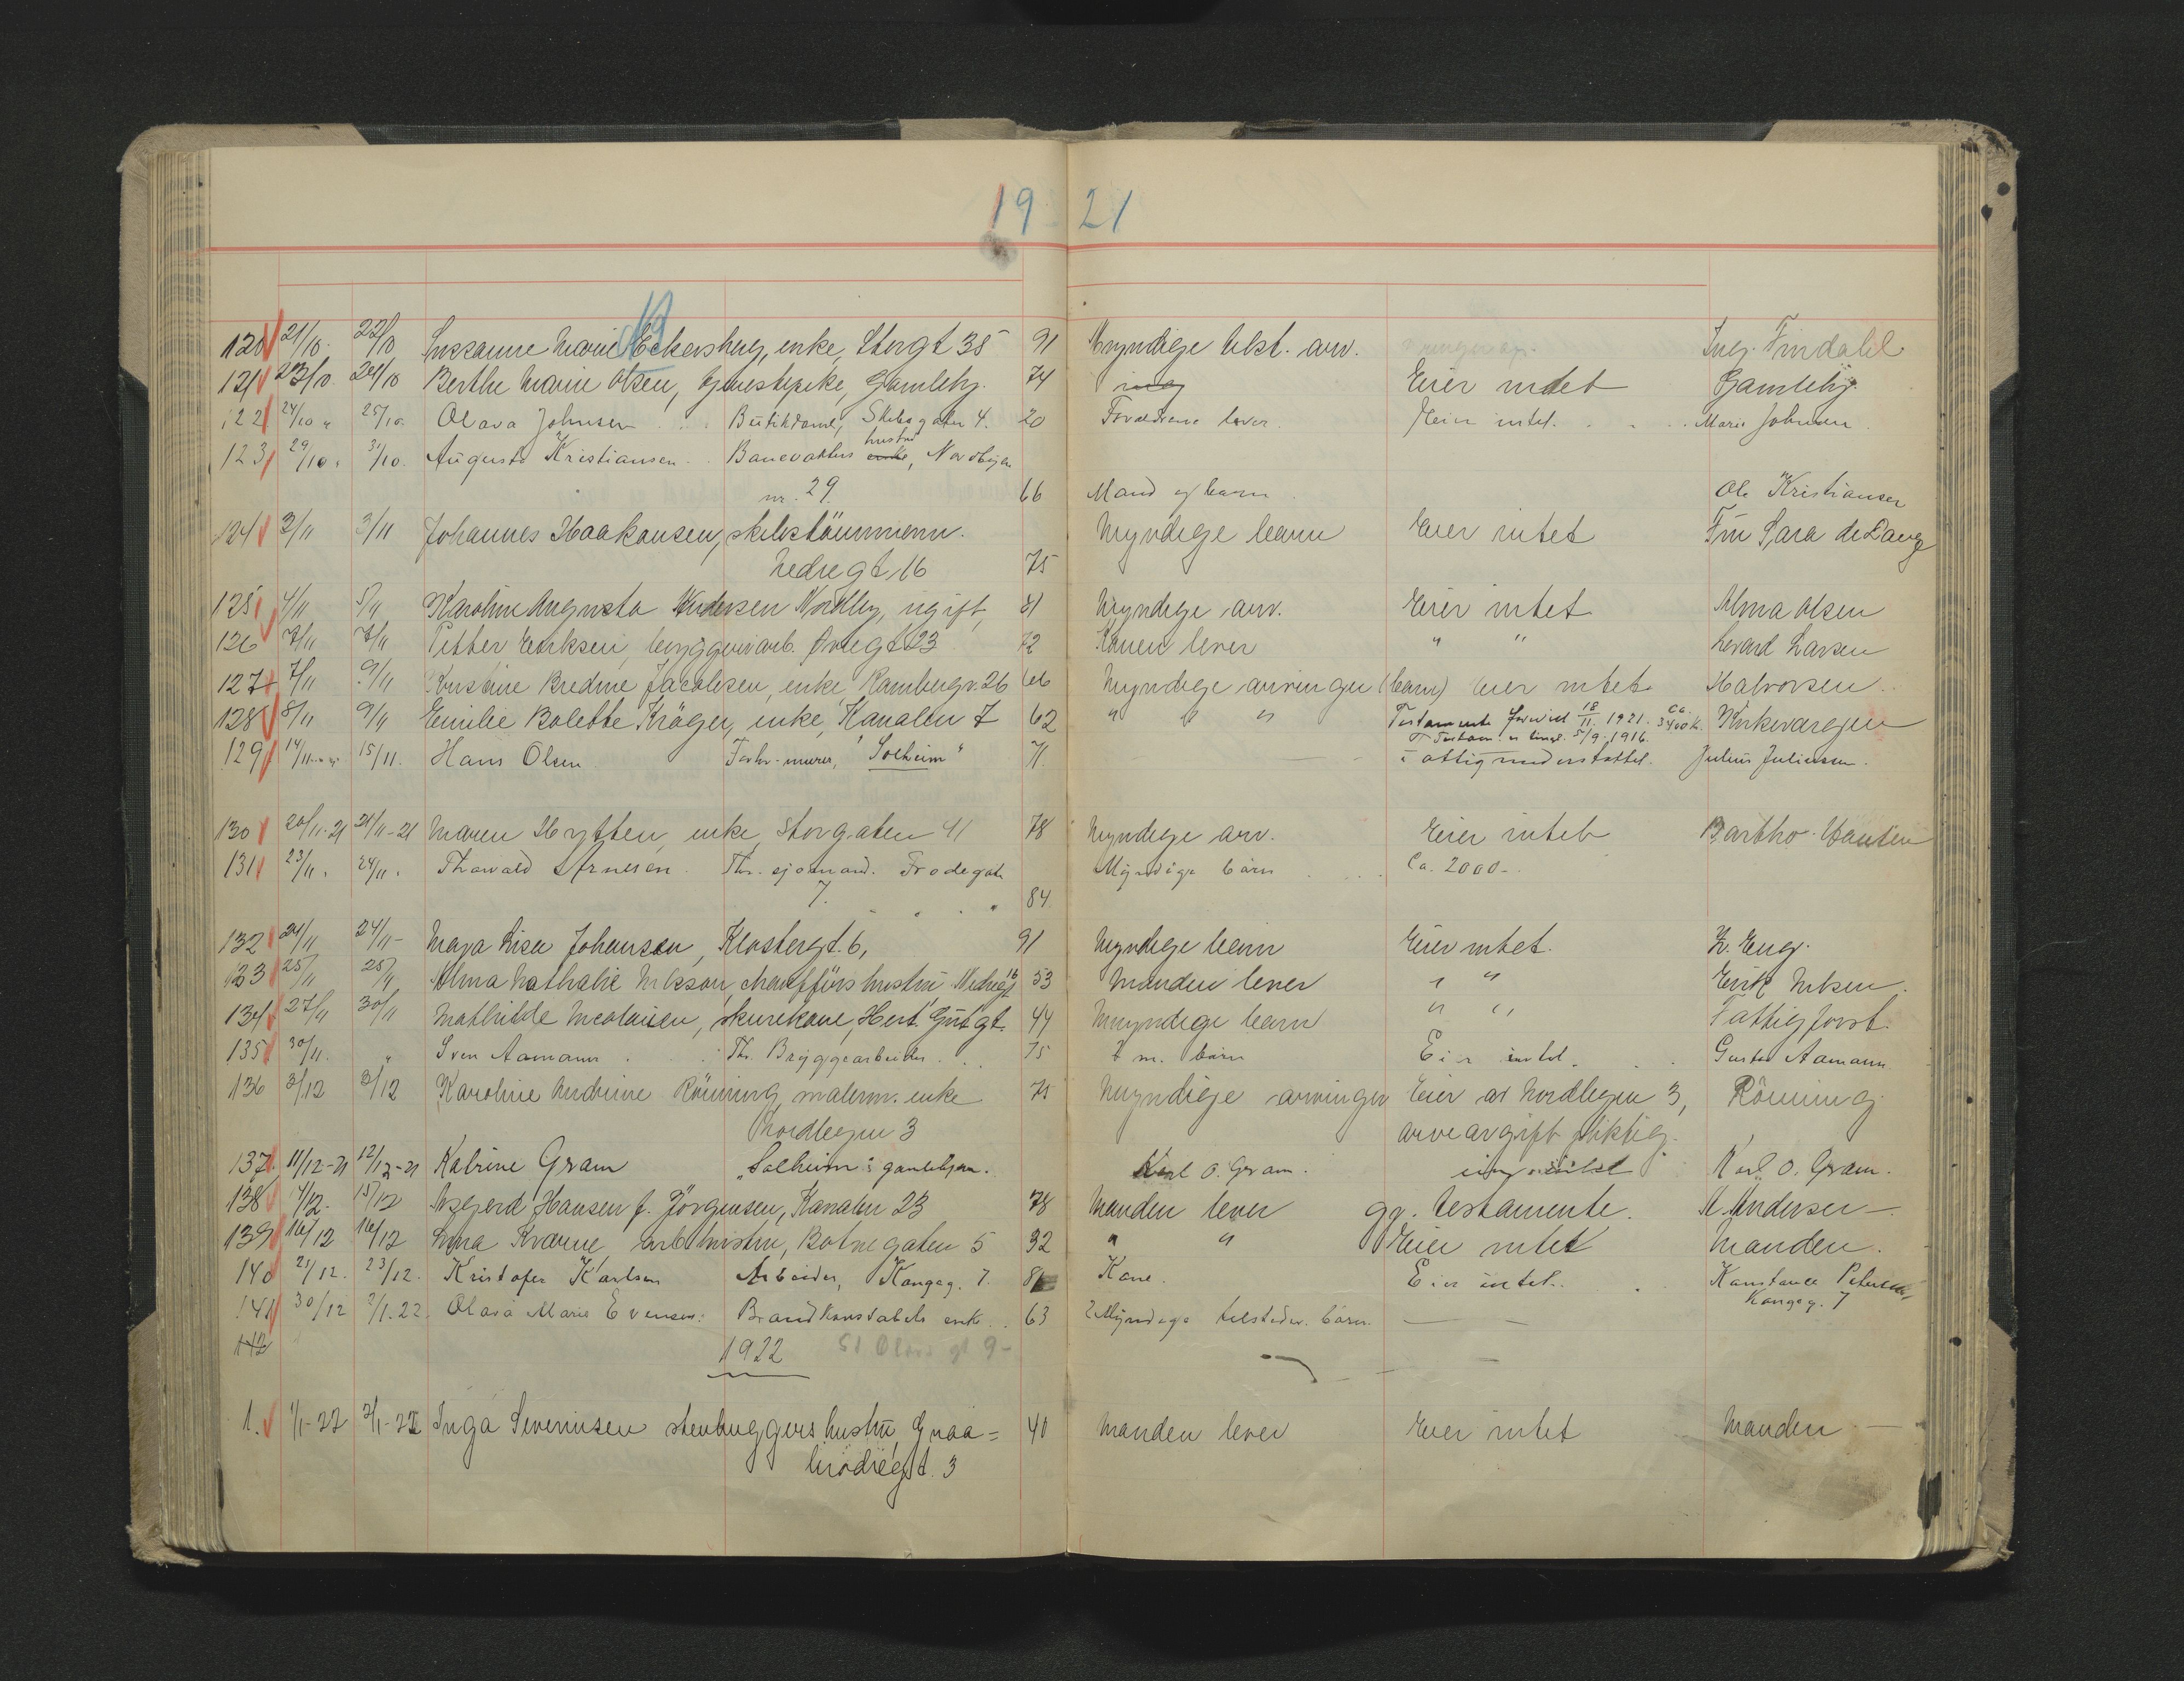 1921
120 21/10 22/10 Susanne Marie Eckersberg, enke, Storgt 35 91 Myndige tilst. arv. Ing. Findahl
121 23/10 24/10 Berthe Marie Olsen, tjenestepike, Gamleby. 74 Eier intet Gamleby.
122 24/10 25/10 Olava Johnsen Butikdame, Skibsgaten 4. 20 Forældrene lever. Eier intet. Marie Johnsen
123 29/10 31/10 Augusta Kristiansen Banevakters enke, hustru Nordbyen
nr. 29 66 Mand og barn Ole Kristiansen
124 2/11 3/11 Johannes Haakonsen, skibstömmerm. Myndige barn Eier intet Frü Sara de Lange
Nedregt 16 75
125 4/11 5/11 Karoline Augusta Andersen Nordby, ugift, 81 Myndige arv. Eier intet Alma Olsen
126 7/11 7/11 Petter Eriksen, bryggeriarb. Øvregt 23 72 Konen lever " " Levard Larsen
127 7/11 9/11 Bredine Jacobsen, enke, Rambergv. 26 66 Myndige arvinger (barn) Eier intet Halvorsen.
128 8/11 9/11 Emilie Bolette Kröger, enke, Kanalen 7 62 " " " Testamente 18/11 1921. Ca. 3400 kr. Kirkevergen
Testam. er tingl. 5/9. 1916.
129 14/11 15/11 Hans Olsen Forhv. murer, "Solheim" 71. Fattigunderstøttet. Julius Juliussen.
130 20/11-21 21/11-21 Maren Hytten, enke, Storgaten 41 78 Myndige arv. Eier intet Bartho. Hansen
131 23/11. 24/11. Thorvald Arnesen Fhv. sjømand. Frodegate
7. 84. Myndige børn Ca. 2000.
132 24/11 24/11- Maja Lisa Johansen, Klostergt. 6, 91 Myndige barn Eier intet. Z. Eng.
133 25/11 25/11 Alma Nathalie Nilsson, chaufførs hustru Nedregt 16 53 Manden lever " " Erik Nilsen.
134 27/11 30/11 Mathilde Nicolaisen, skurekone, Hert. Gut. gt. 44 Umyndige barn " " Fattigforst.
135 30/11. " Sven Aamann Fhv. Bryggearbeider 75 7 m. børn Eier intet. Gustav Aamann.
136 2/12 3/12 Karoline Andrine Rönning, malerm. enke 75 Myndige arvinger Eier av Nordbyen 3, Rönning
Nordbyen 3 arveavgift pliktig.
137. 11/12-21 12/12-21 Katrine Gram "Solheim" i gamlebyen. Karl O. Gram. Karl O. Gram.
138 14/12. 15/12 Asgjerd Hansen f. Jörgensen, Kanalen 23 78 Manden lever gj. testamente. A. Andersen
139 16/12 16/12 Anna Kværne, arb. hustru, Botnegaten 5 32 " " Eier intet Manden.
140 21/12. 23/12. Kristofer Karlsen Arbeider, Kongeg. 7. Kone. Eier intet. Konstance Petersen,
Kongeg. 7
141 30/12 2/1.22. Olava Marie Evensen: Brandkonstabels enke 63 2 Myndige tilstedev. börn.
142 1922 St Olavs gt 9-
1. 1/1-22 2/1-22 Inga Severinsen stenhuggers hustru, Graa= 40 Manden lever Eier intet Manden
brödregt. 3